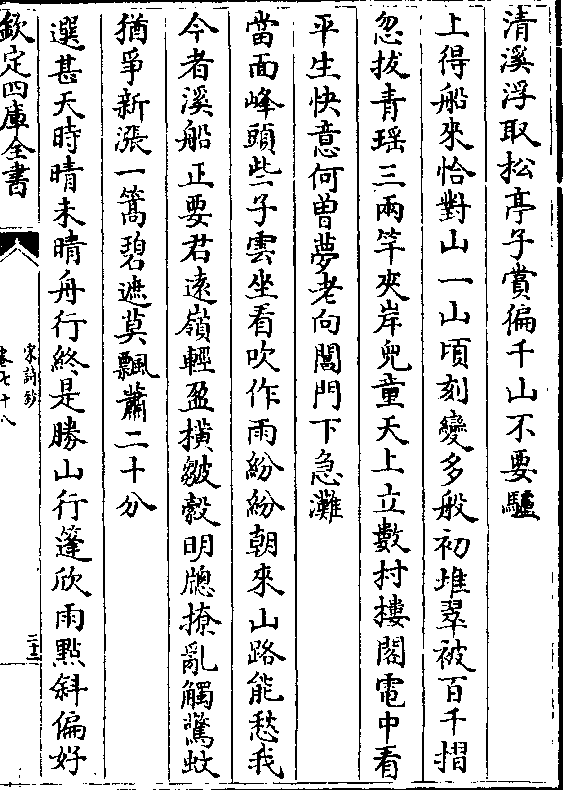 清溪浮取松亭子賞徧千山不要驢
上得船來恰對山一山頃刻變多般初堆翠被百千摺
忽拔青瑶三兩竿夾岸兒童天上立數村樓閣電中看
平生快意何曽夢老向閶門下急灘
當面峰頭些子雲坐看吹作雨紛紛朝來山路能愁我
今者溪船正要君遠嶺輕盈横皺縠明牕撩亂觸驚蚊
猶爭新漲一篙碧遮莫飄蕭二十分
選甚天時晴未晴舟行終是勝山行篷欣雨點斜偏好
欽定四庫全書
宋詩鈔
卷七十八
三十二